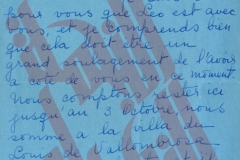 pour vous que Leo est avec
vous, et je comprends bien
que cela doit être un
grand soulagement de l'avoir
a coté de vous en ce moment.
Nous comptons rester ici
jusqu au 3 Octobre, nous
somme a la villa du
Louis de Vallombrosa